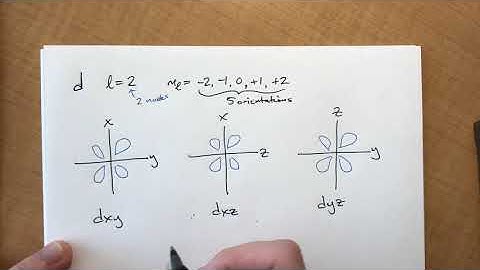 d l=2 mₗ= -2, -1, 0, +1, +2
↑ 2 nodes 5 orientations
x x z
y z y
dxy dxz dyz